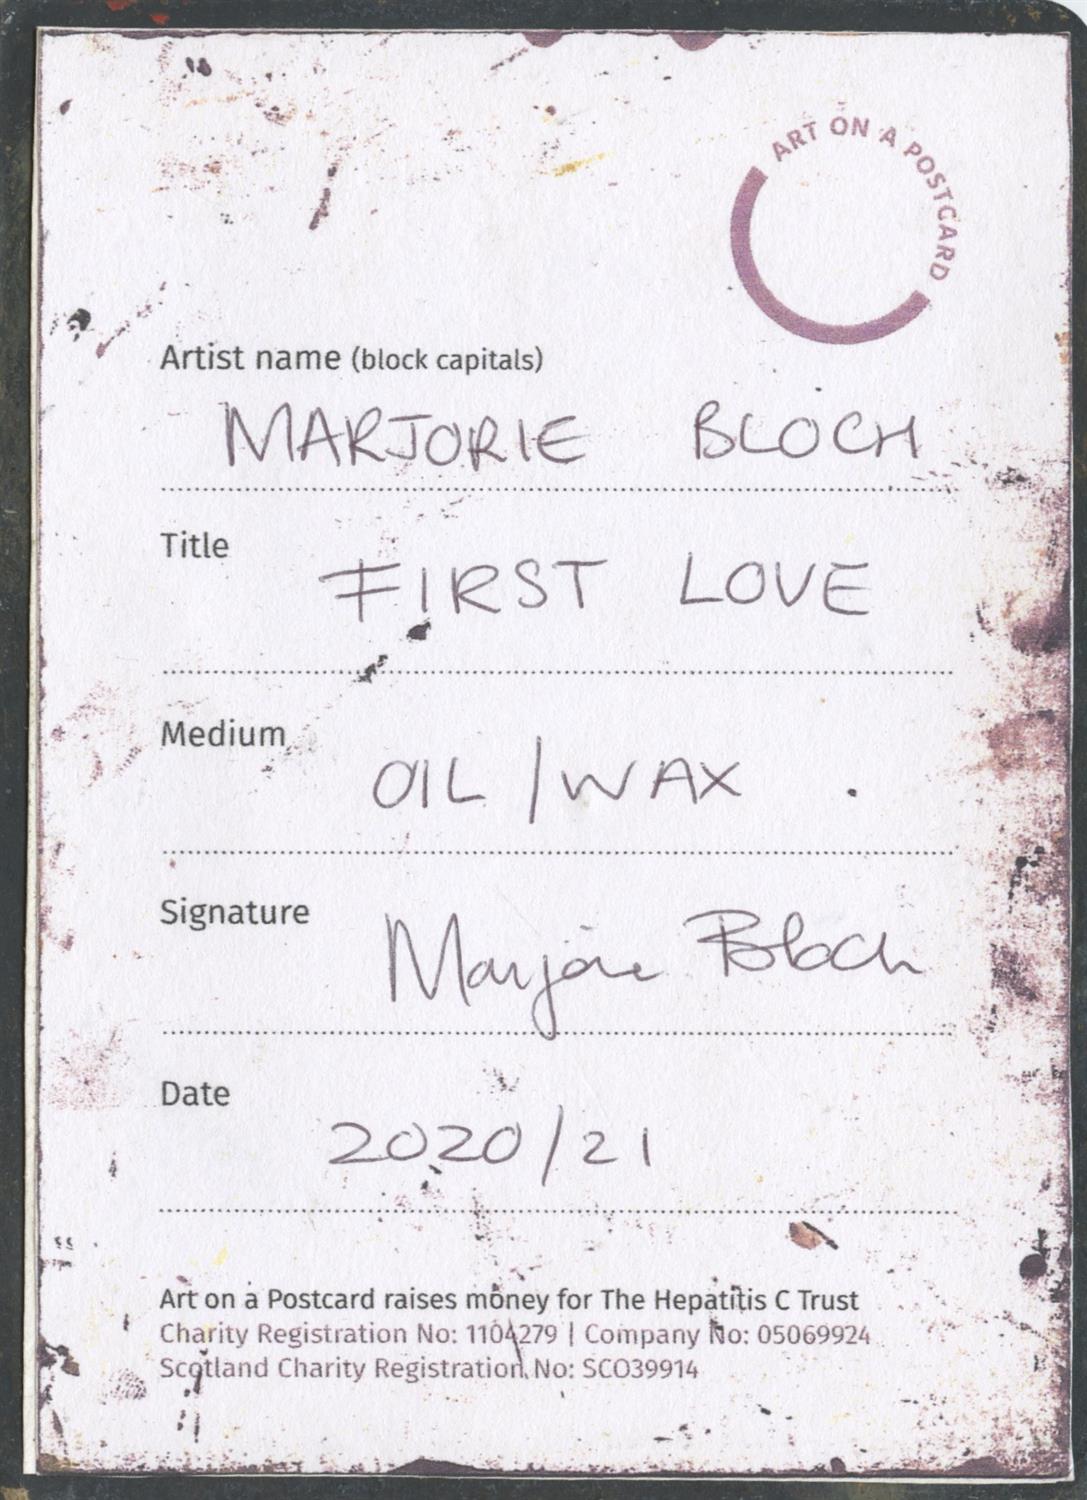 ART ON A POSTCARD
Artist name (block capitals)
MARJORIE BLOCH
Title
FIRST LOVE
Medium
OIL/WAX
Signature
Marjorie Bloch
Date
2020/21
Art on a Postcard raises money for The Hepatitis C Trust
Charity Registration No: 1104279 | Company No: 05069924
Scotland Charity Registration No: SCO39914